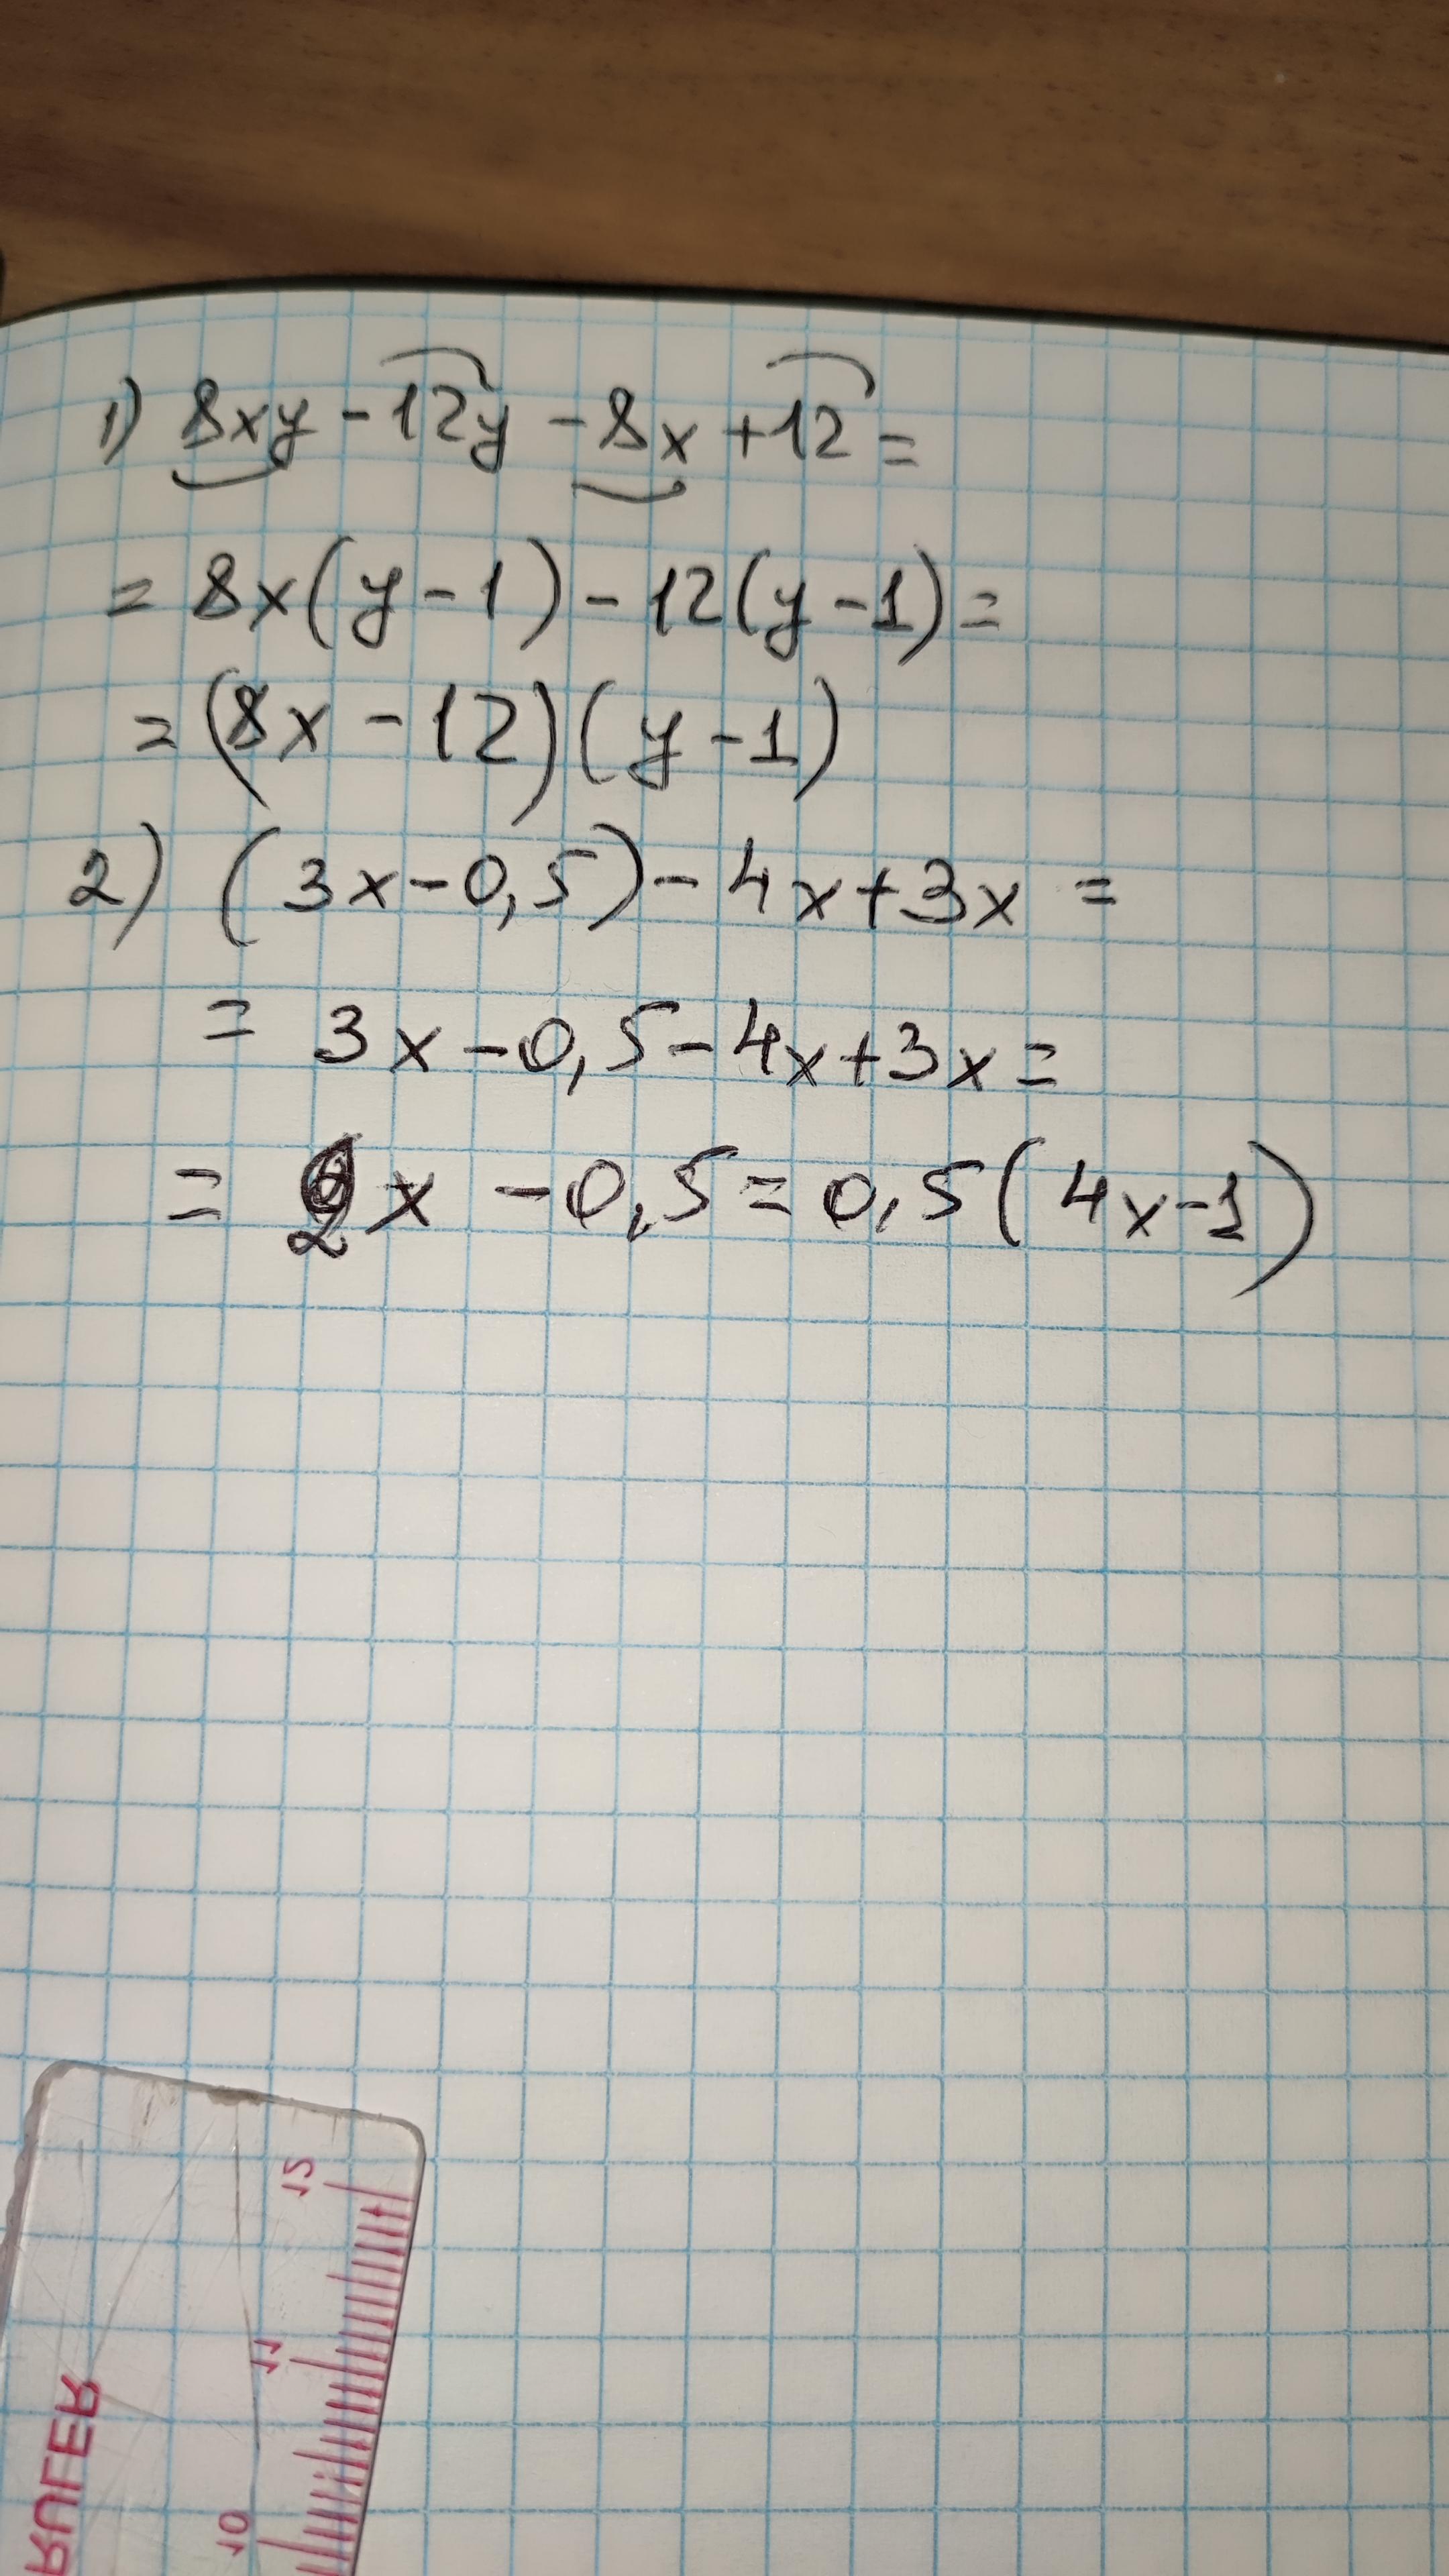 1) 8xy - 12y - 8x + 12 =
= 8x(y - 1) - 12(y - 1) =
= (8x - 12)(y - 1)
2) (3x - 0,5) - 4x + 3x =
= 3x - 0,5 - 4x + 3x =
= 2x - 0,5 = 0,5(4x - 1)
12
11
10
RULER